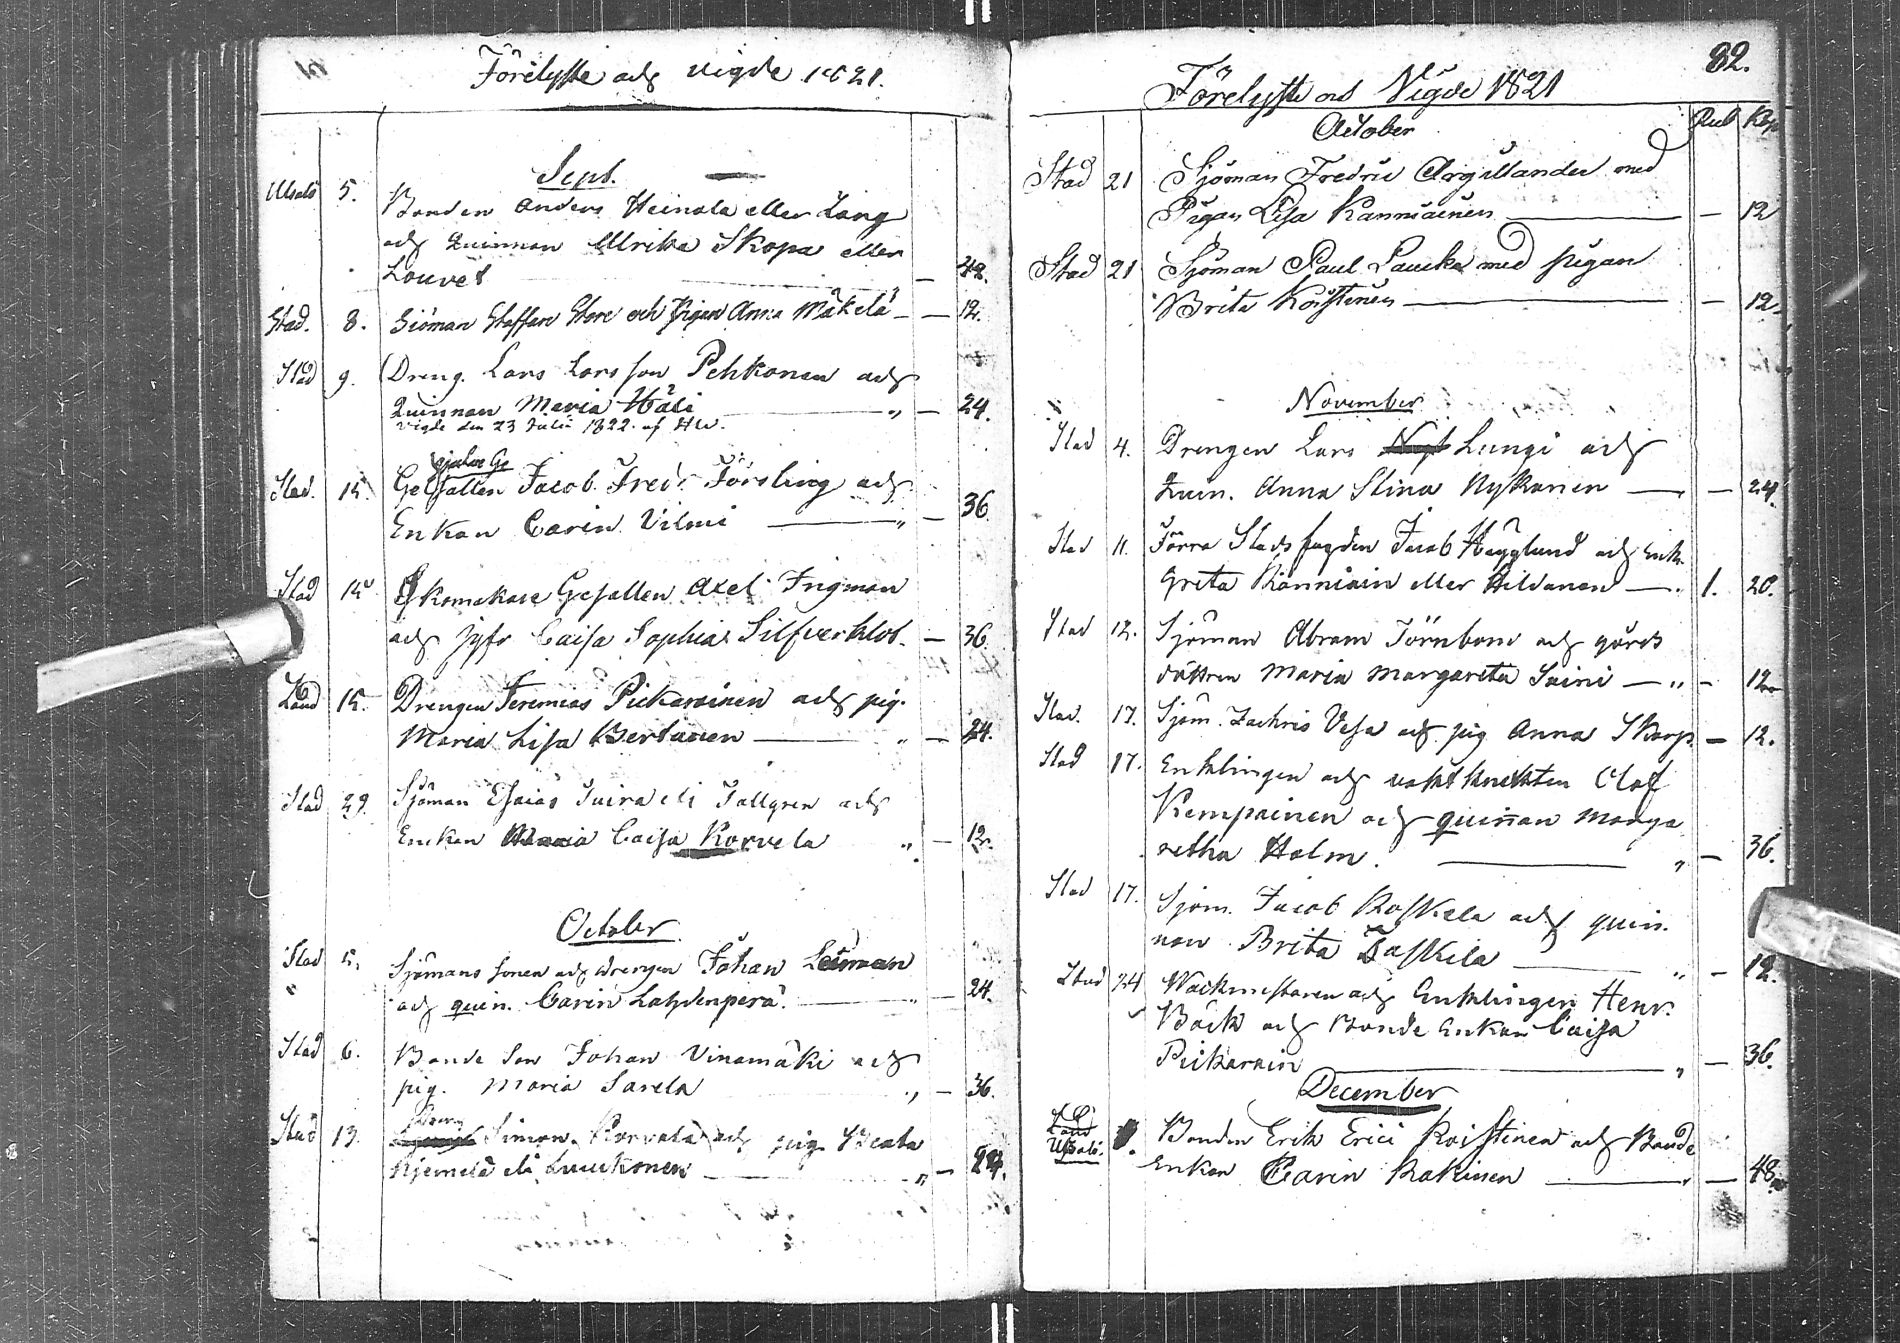 Förelyste och vigde 1821.
Sept.
Uleåb 5. Bonden Anders Heinola eller Lang
och Quinnan Ulrika Skopa eller
Louvet — 48.
Stad. 8. Siöman Staffan Store och Pigan Anna Mäkelä — 12.
Stad 9. Dreng. Lars Larsson Pehkonen och
Quinnan Maria Häli " — 24.
Vigde den 23 Julii 1822. af HW.
Stad. 15. Gesällen Jacob Fredr Försling och
Enkan Carin Vilmi " — 36.
Stad 15 Skomakare Gesällen Axel Ingman
och Jgfr Caisa Sophia Silfverklot. — 36.
Land 15. Drengen Jeremias Pickarainen och pig.
Maria Lisa Bertunen " — 24.
Stad 29. Sjöman Esaias Juira eli Jallgren och
Enckan Caisa Korvela " — 12.
October
Stad 5. Sjömans sonen och drengen Johan Leiman
och quin. Carin Lahdenperä. " — 24.
Stad 6. Bonde Son Johan Vinamäki och
pig. Maria Sarela " — 36.
Stad 13. Dreng Simon Korvala och pig Beata
Niemelä eli Luuckonen " — 24.
82.
Förelyste och Vigde 1821
October Rub Kop
Stad 21 Sjöman Fredric Argillander med
Pigan Lisa Kanniainen — 12
Stad 21 Sjöman Paul Laucka med pigan
Brita Koistinen — 12
November
Stad 4. Drengen Lars Lungi och
Quin. Anna Stina Nykänen — 24.
Stad 11. Förra Stads fogden Jacob Hägglund och Enk.
Greta Känniäin eller Hildanen 1. 20.
Stad 12. Sjöman Abram Törnbom och gårds
dottren Maria Margareta Saini " — 12
Stad. 17. Sjöm. Zachris Vesa och pig Anna Skarp — 12.
Stad 17. Enklingen och vakt knekten Olof
Kempainen och quinnan Marga
retha Holm. " — 36.
Stad 17. Sjöm. Jacob Koskela och quin.
nan Brita Taskila " — 12.
Stad 24 Wackmestaren och Enklingen Henr.
Bäck och Bonde Enkan Caisa
Pickarain " — 36.
December
Land
Uleåb. Bonden Erik Erici Koistinen och Bonde
Enkan Carin Kokinen — 48